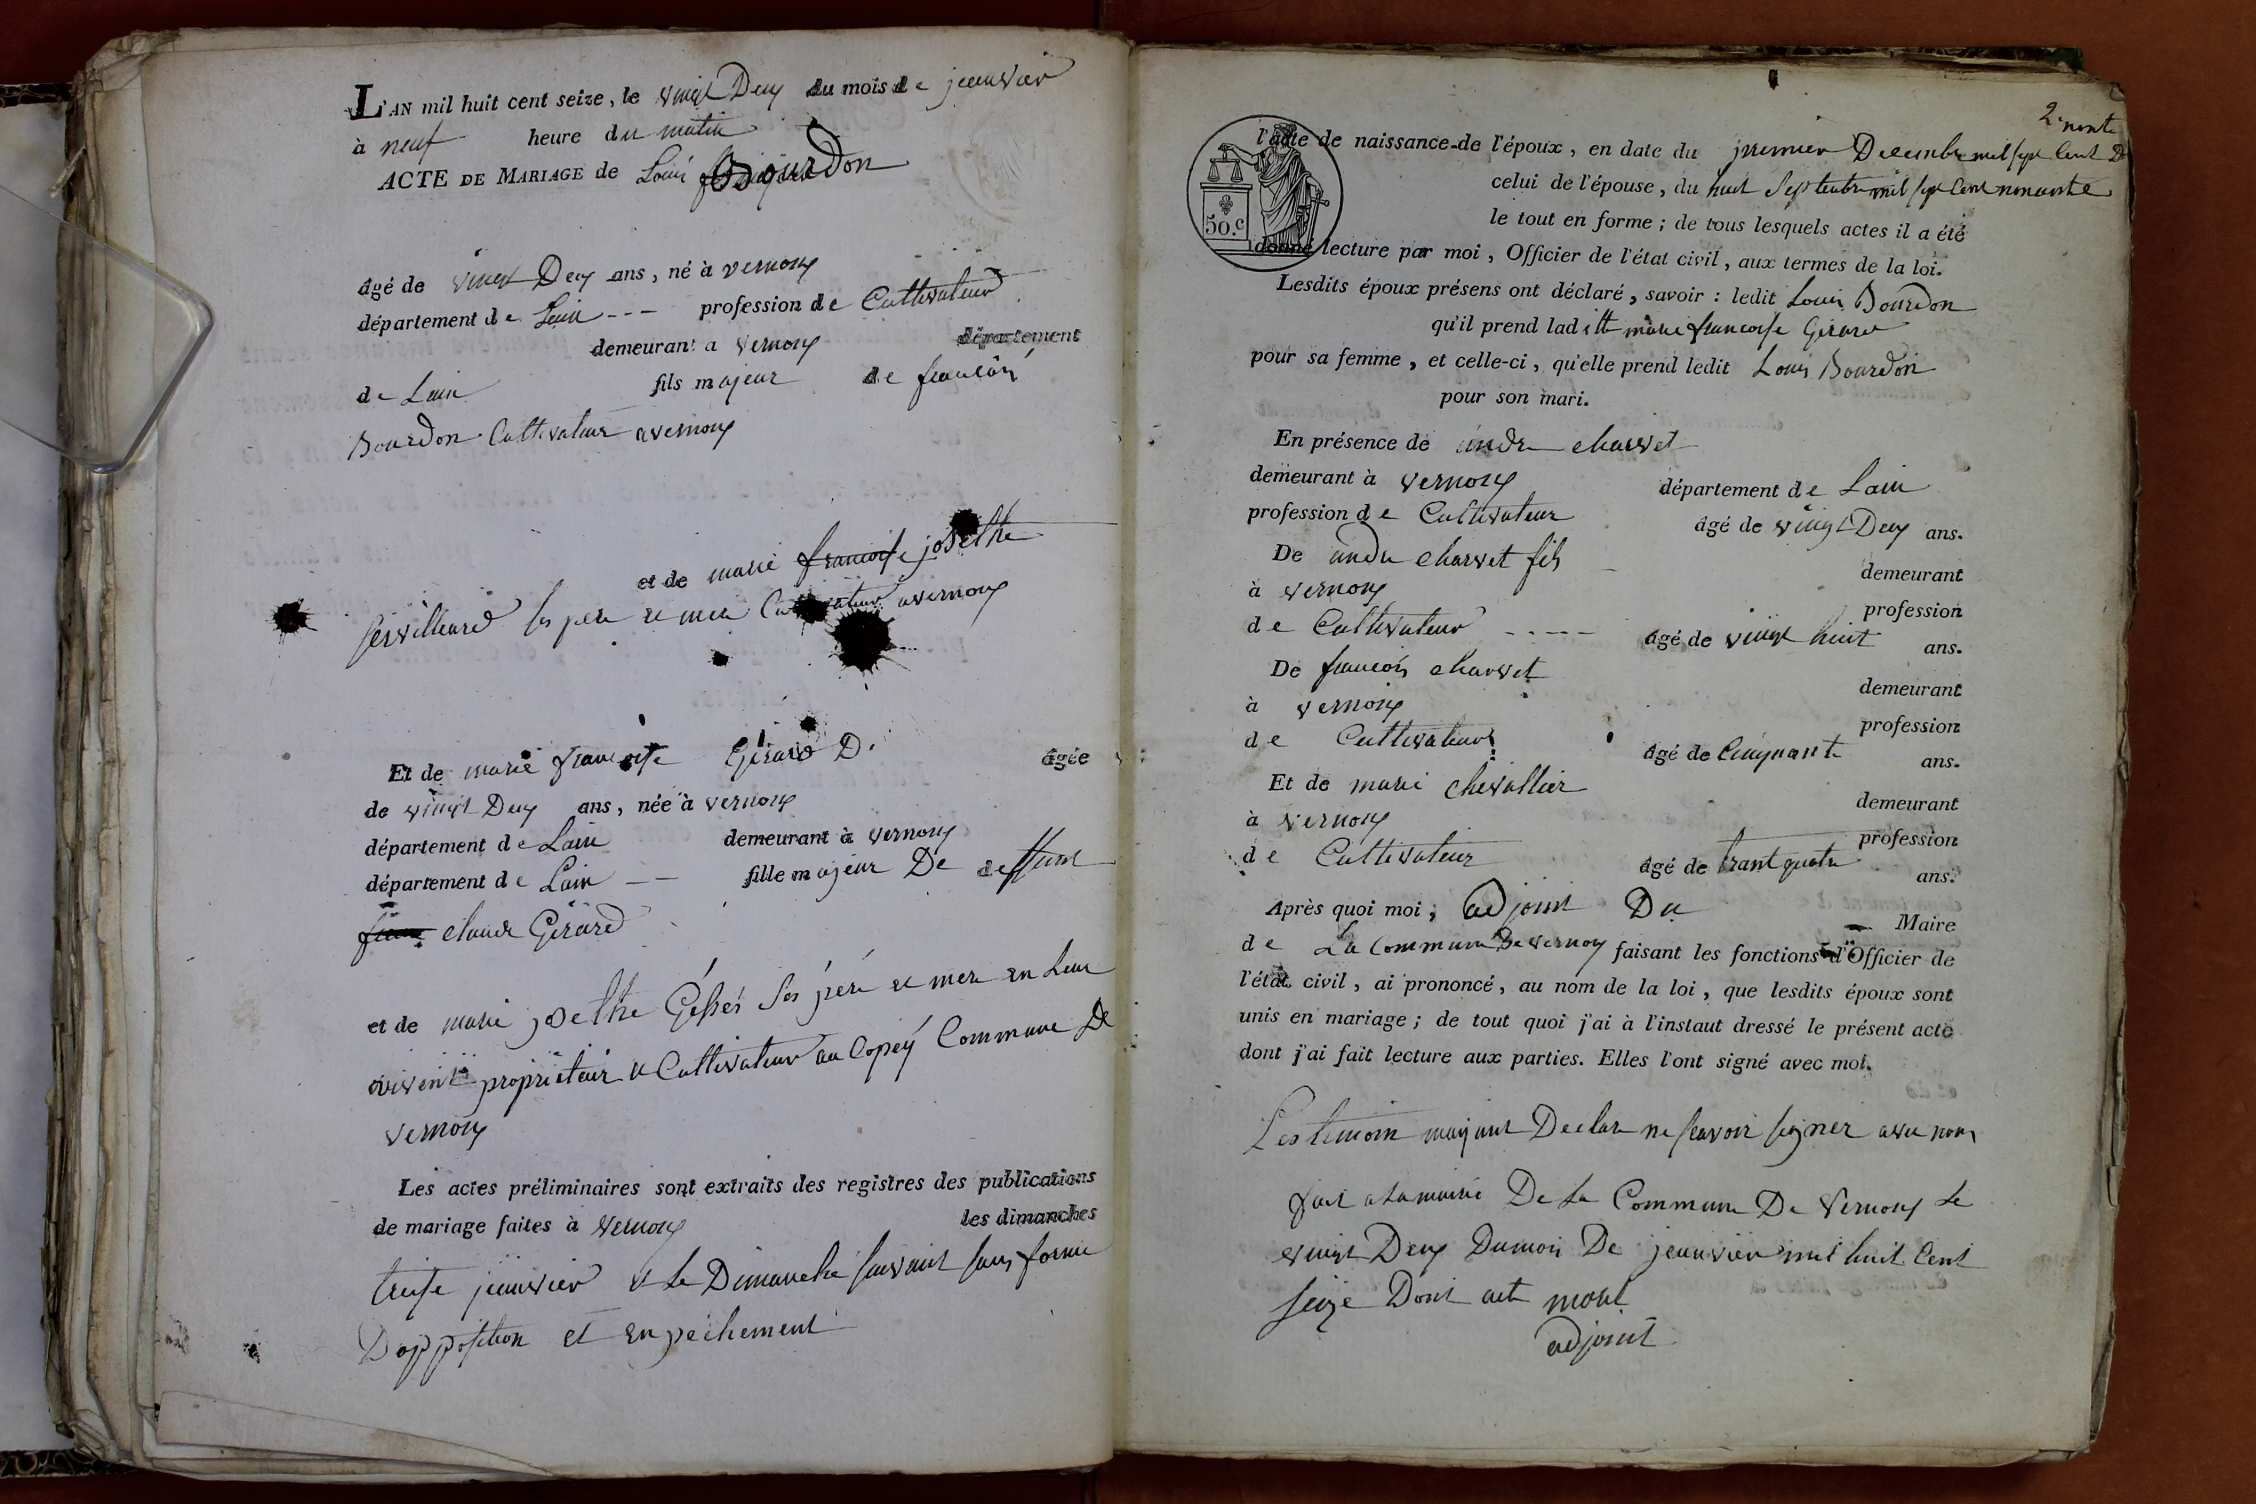 L'AN mil huit cent seize, le vingt Deux du mois de jeanvier
à neuf heure du matin
ACTE DE MARIAGE de Louis Bourdon
âgé de vingt Deux ans, né à vernoux
département de Lain --- profession de Cultivateur
demeurant a vernoux département
de Lain fils majeur de francois
Bourdon Cultivateur a vernoux
et de marie francoise josethe
servillard ses pere et mere Cultivateur a vernoux
Et de marie francoise Girard D. âgée
de vingt Deux ans, née à vernoux
département de Lain demeurant à vernoux
département de Lain -- fille majeur De deffunt
claude Girard
et de marie josethe ses père et mere en leur
vivent propriétair et Cultivateur au Copey Commune De
vernoux
Les actes préliminaires sont extraits des registres des publications
de mariage faites à vernoux les dimanches
treise jeanvier et le Dimanche suivant sans forme
Dopposition et enpechement
2
nonte
l'acte de naissance de l'époux, en date du premier Decembre mil sept Cent
celui de l'épouse, du huit Septembre mil sept Cent nonante
le tout en forme; de tous lesquels actes il a été
50.c
donné lecture par moi, Officier de l'état civil, aux termes de la loi.
Lesdits époux présens ont déclaré, savoir : ledit Louis Bourdon
qu'il prend laditt marie francoise Girard
pour sa femme, et celle-ci, qu'elle prend ledit Louis Bourdon
pour son mari.
En présence de andre charvet
demeurant à vernoux département de Lain
profession de Cultivateur âgé de vingt Deux ans.
De andre charvet fils demeurant
à vernoux profession
de Cultivateur ----- âgé de vingt huit ans.
De francois charvet demeurant
à vernoux profession
de Cultivateur âgé de Cinquante ans.
Et de marie chevallier demeurant
à vernoux profession
de Cultivateur âgé de trant quatre ans.
Après quoi moi, adjoint Du Maire
de La Commune De vernoux faisant les fonctions d'Officier de
l'état civil, ai prononcé, au nom de la loi, que lesdits époux sont
unis en mariage; de tout quoi j'ai à l'instaut dressé le présent acte
dont j'ai fait lecture aux parties. Elles l'ont signé avec moi.
Les timoin mayant Declare ne scavoir signer avec nous
fait a la mairie De La Commune De Vernoux Le
vingt Deux Dumois De jeanvier mil huit Cent
seize Dont acte
adjoint